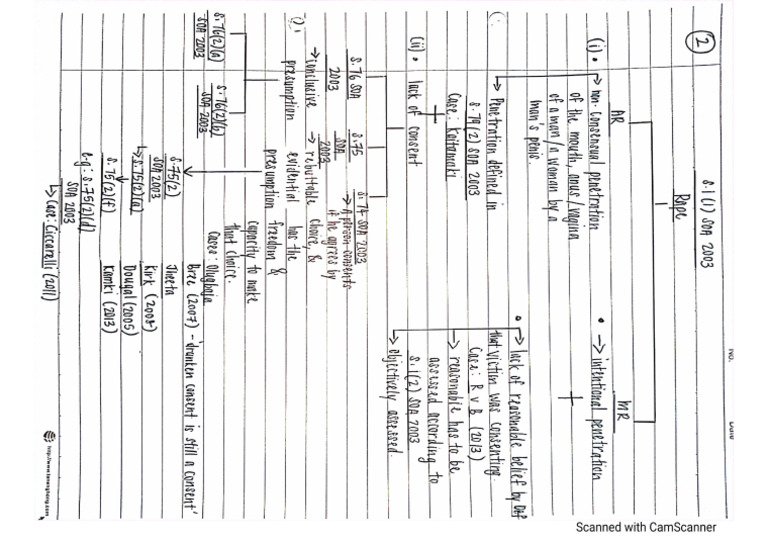 No.
Date
2
S.1(1) SOA 2003
Rape
AR
MR
(i) • → non-consensual penetration
of the mouth, anus/vagina
of a man/a woman by a
man's penis.
→ Penetration defined in
S.79(2) SOA 2003
Case: Kaitamaki
+
(ii) • lack of consent
S.76 SOA
2003
→ conclusive
presumption
S.76(2)(a)
SOA 2003
S.76(2)(b)
SOA 2003
S.75
SOA
2003
→ rebuttable
evidential
presumption
S.75(2)
SOA 2003
↳ S.75(2)(a)
S.75(2)(f)
e.g: S.75(2)(d)
SOA 2003
↳ Case: Ciccarelli (2011)
S.74 SOA 2003
→ A person consents
if he agrees by
choice, &
has the
freedom &
capacity to make
that choice.
Cases: Olugboja
Bree (2007) - 'drunken consent is still a consent'
Jheeta
Kirk (2008)
Dougal (2005)
Kamki (2013)
• → intentional penetration
+
• → lack of reasonable belief by Def
that victim was consenting.
Case: R v B (2013)
→ reasonable has to be
assessed according to
S.1(2) SOA 2003
→ objectively assessed.
Scanned with CamScanner